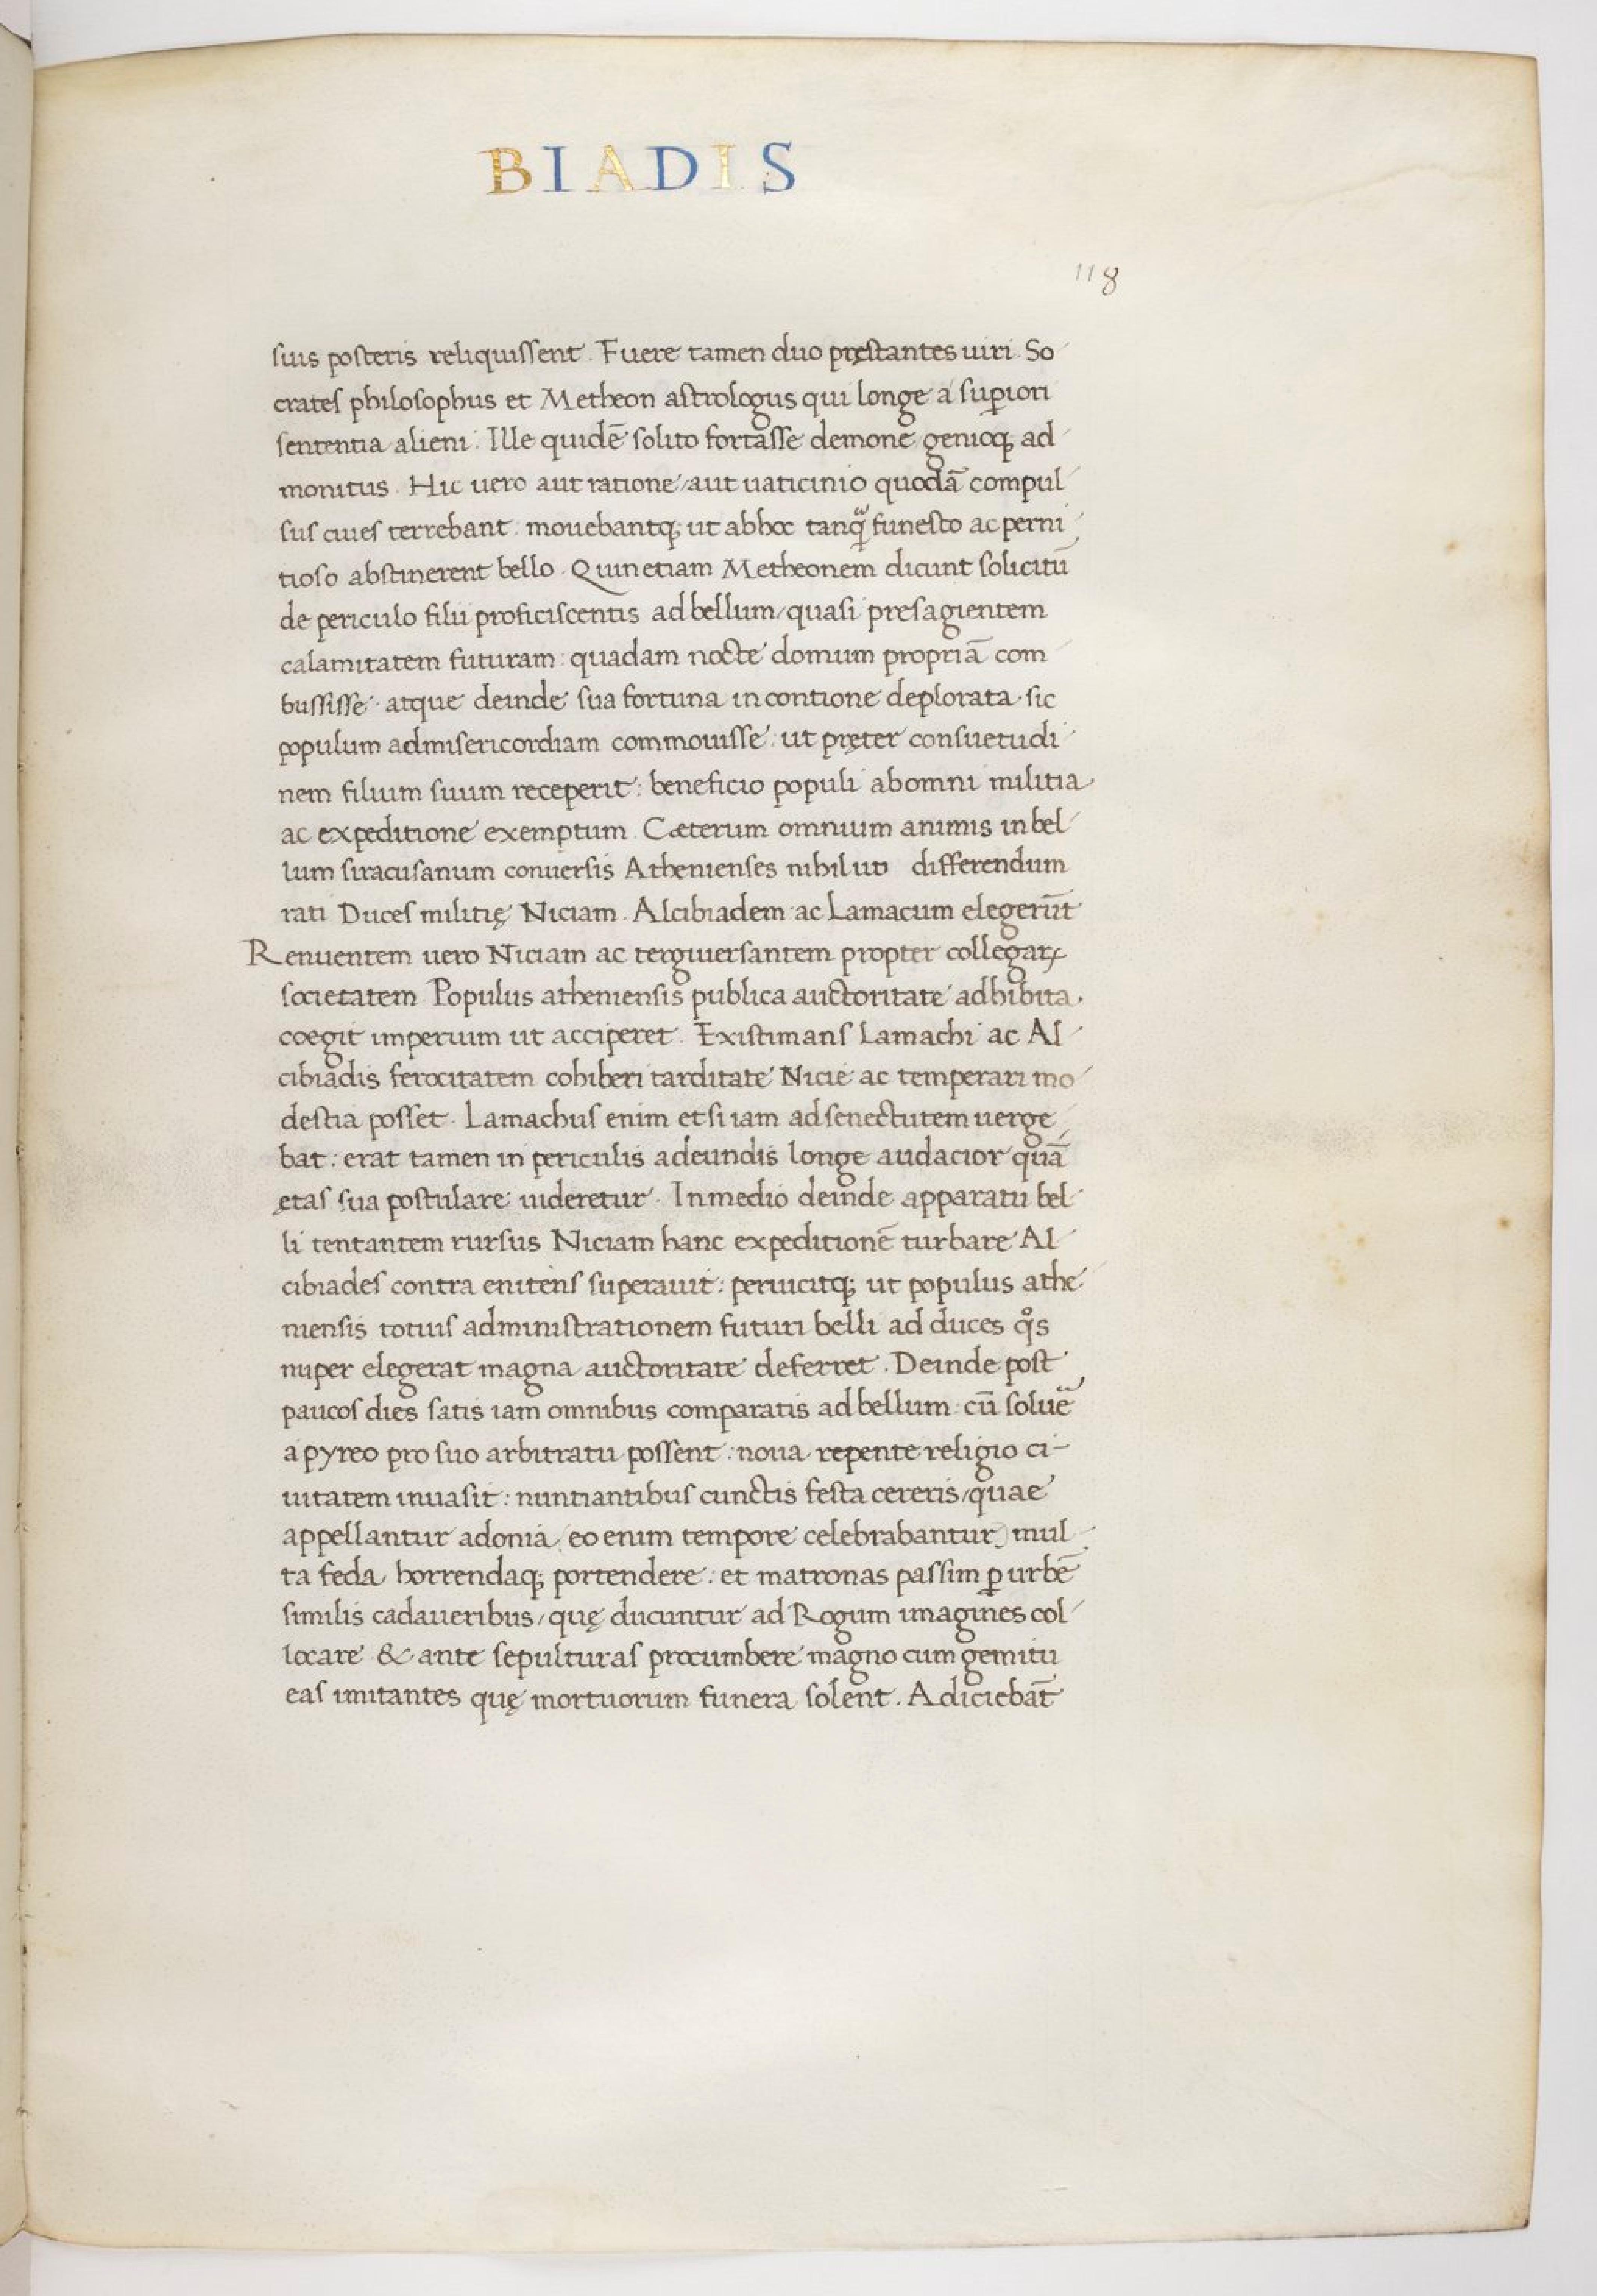 BIADIS
118
suis posteris reliquissent. Fuere tamen duo pręstantes uiri. So
crates philosophus et Metheon astrologus qui longe a suꝑiori
sententia alieni. Ille quidē solito fortasse demone genioq; ad
monitus. Hic uero aut ratione/aut uaticinio quodā compul
sus ciues terrebant: mouebantq; ut ab hoc tanq̃ funesto ac perni
tioso abstinerent bello. Quin etiam Metheonem dicunt solicitū
de periculo filii proficiscentis ad bellum/quasi presagientem
calamitatem futuram: quadam nocte domum propriā com
bussisse: atque deinde sua fortuna in contione deplorata. sic
populum ad misericordiam commouisse: ut pręter consuetudi
nem filium suum receperit: beneficio populi ab omni militia
ac expeditione exemptum. Cæterum omnium animis in bel
lum siracusanum conuersis Athenienses nihil ut differendum
rati Duces militię Niciam. Alcibiadem ac Lamacum elegerūt
Renuentem uero Niciam ac tergiuersantem propter collegaꝝ
societatem. Populus atheniensis publica auctoritate adhibita
coegit imperium ut acciperet. Existimans Lamachi ac Al
cibiadis ferocitatem cohiberi tarditate Nicie ac temperari mo
destia posset. Lamachus enim etsi iam ad senectutem uerge
bat: erat tamen in periculis adeundis longe audacior quā
ętas sua postulare uideretur. In medio deinde apparatu bel
li tentantem rursus Niciam hanc expeditionē turbare Al
cibiades contra enitens superauit: peruicitq; ut populus athe
niensis totius administrationem futuri belli ad duces qͦs
nuper elegerat magna auctoritate deferret. Deinde post
paucos dies satis iam omnibus comparatis ad bellum: cū soluē
a pyreo pro suo arbitratu possent: noua repente religio ci-
uitatem inuasit: nuntiantibus cunctis festa cereris/quae
appellantur adonia (eo enim tempore celebrabantur) mul
ta feda horrendaq; portendere: et matronas passim ꝑ urbē
similis cadaueribus/quę ducuntur ad Rogum imagines col
locare & ante sepulturas procumbere magno cum gemitu
eas imitantes quę mortuorum funera solent. Adiciebāt